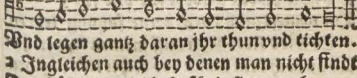 Vnd legen gantz daran jhr thun vnd tichten.
2 Ingleichen auch bey denen man nicht findt